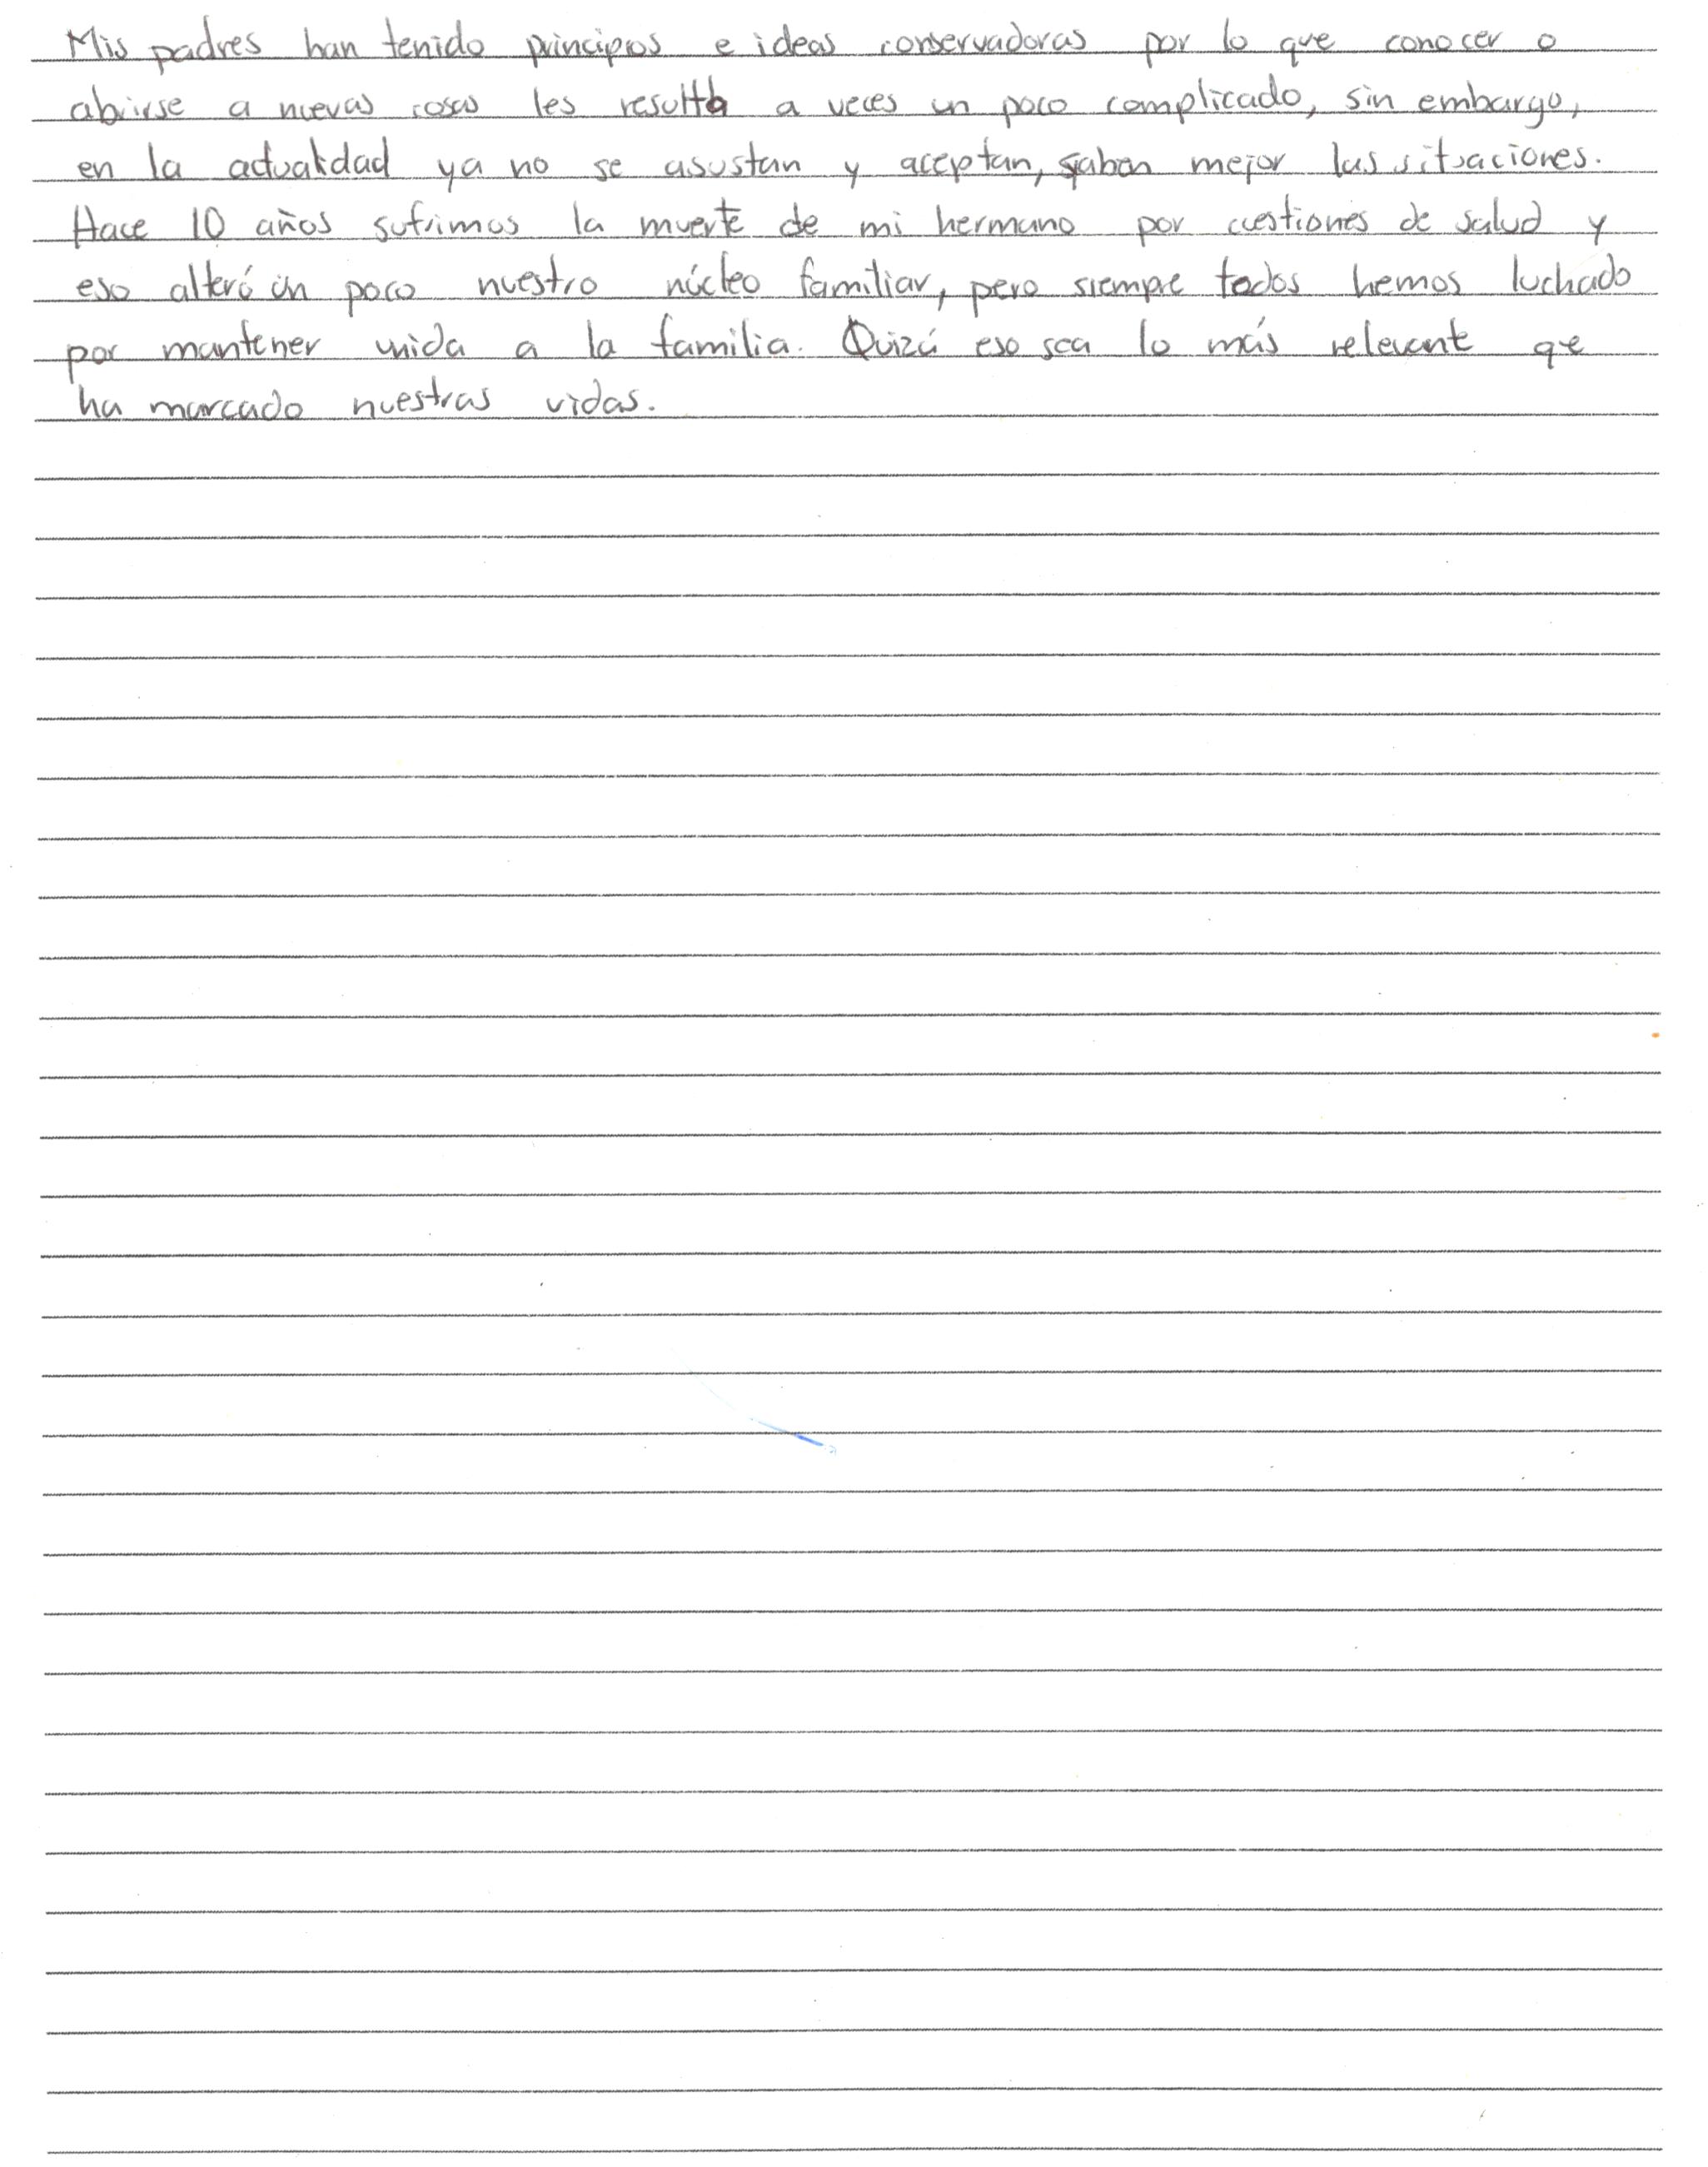 Mis padres han tenido principios e ideas conservadoras por lo que conocer o
abrirse a nuevas cosas les resulta a veces un poco complicado, sin embargo,
en la actualidad ya no se asustan y aceptan, saben mejor las situaciones.
Hace 10 años sufrimos la muerte de mi hermano por cuestiones de salud y
eso alteró un poco nuestro núcleo familiar, pero siempre todos hemos luchado
por mantener unida a la familia. Quizá eso sea lo más relevante que
ha marcado nuestras vidas.